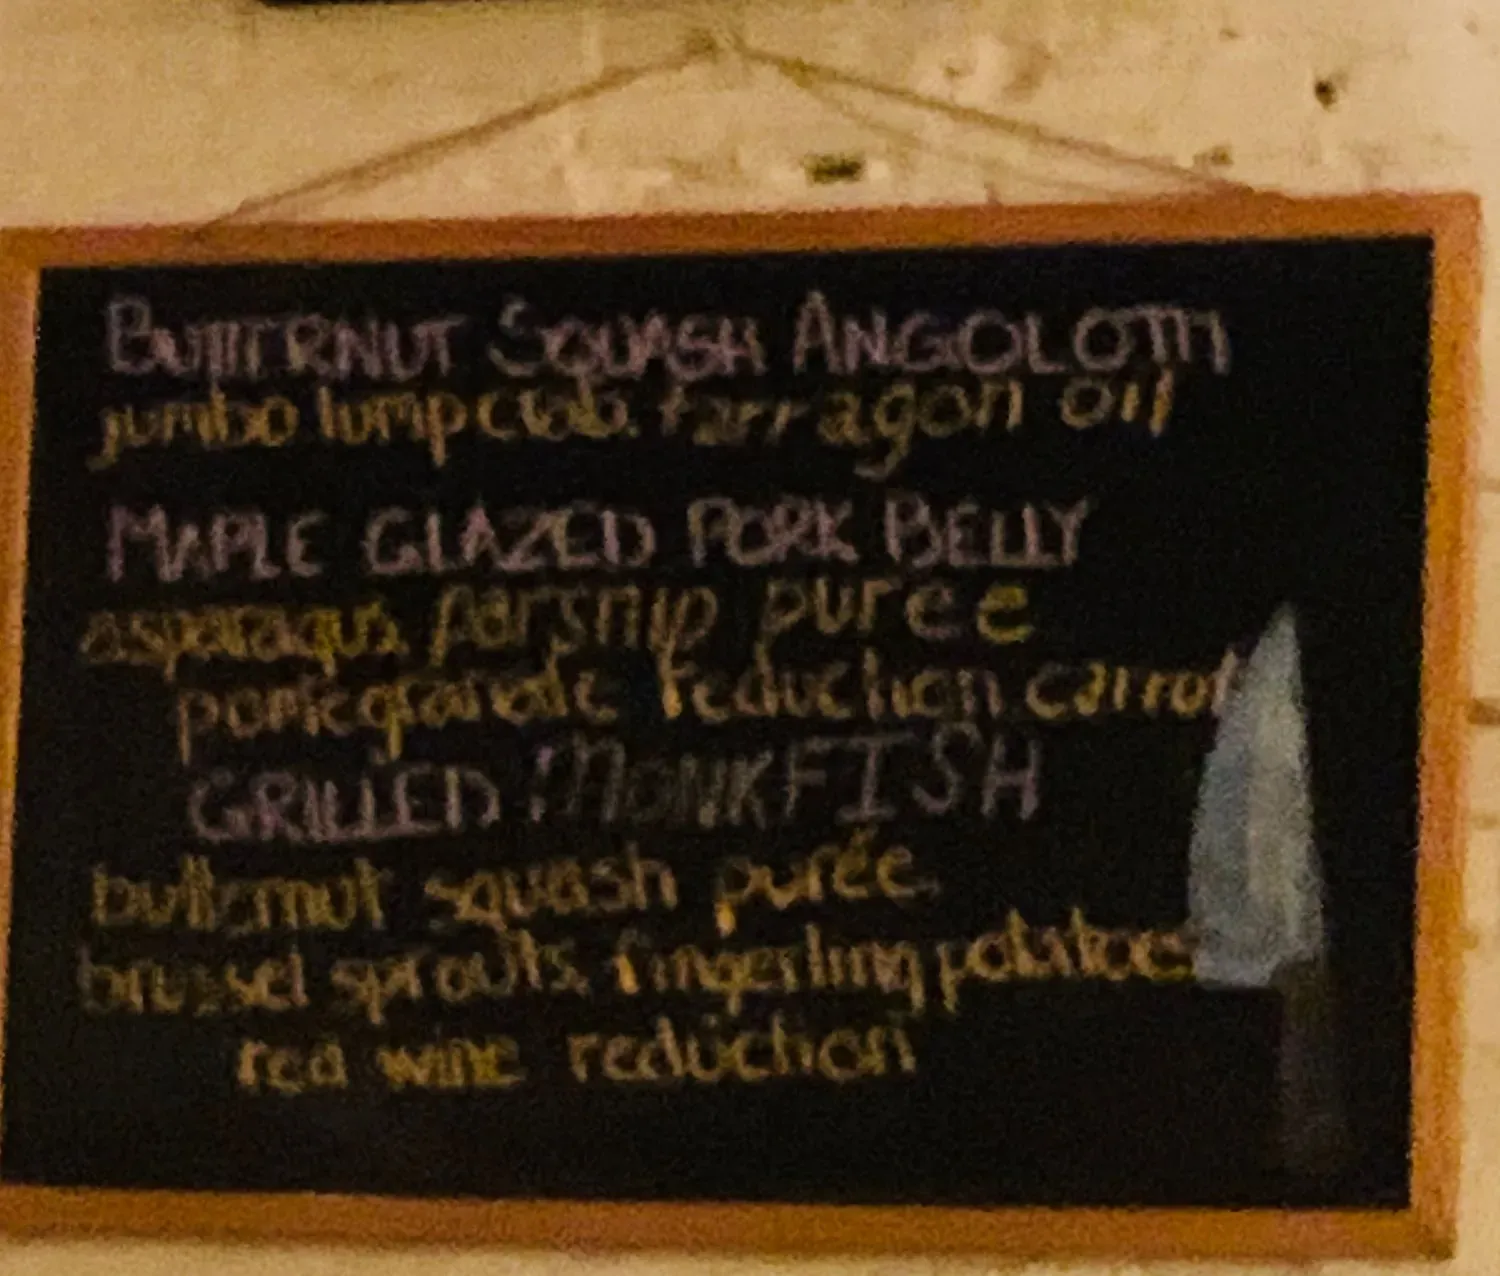 BUTTERNUT SQUASH ANGOLOTTI
jumbo lump crab. tarragon oil
MAPLE GLAZED PORK BELLY
asparagus. parsnip purée
pomegranate reduction carrot
GRILLED MONKFISH
butternut squash purée.
brussel sprouts. fingerling potatoes
red wine reduction